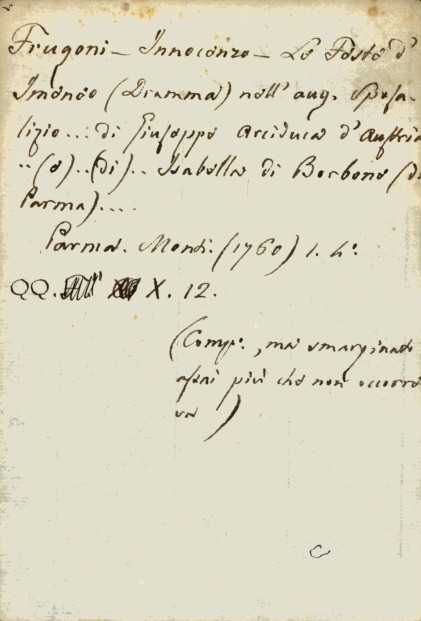 Frugoni - Innocenzo - Le Feste d'
Imeneo (Dramma) nell' aug. Sposa-
lizio... di Giuseppe Arciduca d'Austria
..(e)..(di).. Isabella di Borbone (di
Parma)....
Parma. Monti. (1760) 1. 4°.
QQ. X. 12.
(Comp°., ma smarginato
assai più che non occorre
va)